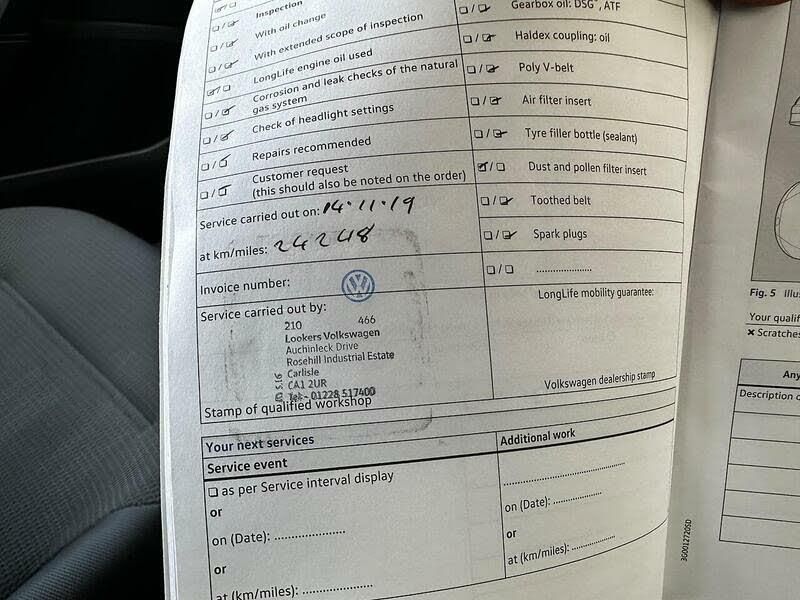 Inspection
With oil change
With extended scope of inspection
LongLife engine oil used
Corrosion and leak checks of the natural
gas system
Check of headlight settings
Repairs recommended
Customer request
(this should also be noted on the order)
Service carried out on: 14.11.19
at km/miles: 24248
Invoice number:
Service carried out by:
210 466
Lookers Volkswagen
Auchinleck Drive
Rosehill Industrial Estate
Carlisle
CA1 2UR
Tel:- 01228 517400
Stamp of qualified workshop
Gearbox oil: DSG, ATF
Haldex coupling: oil
Poly V-belt
Air filter insert
Tyre filler bottle (sealant)
Dust and pollen filter insert
Toothed belt
Spark plugs
....................
LongLife mobility guarantee:
Volkswagen dealership stamp
Your next services
Service event
as per Service interval display
or
on (Date): ....................
or
at (km/miles): ....................
Additional work
....................
on (Date): ..............
or
at (km/miles): ............
3G0012720SD
Fig. 5 Illus
Your qualif
× Scratches
Any
Description o